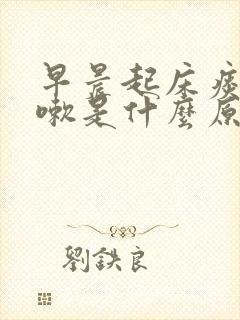 早晨起床
嗽是什麼原
劉鉄良